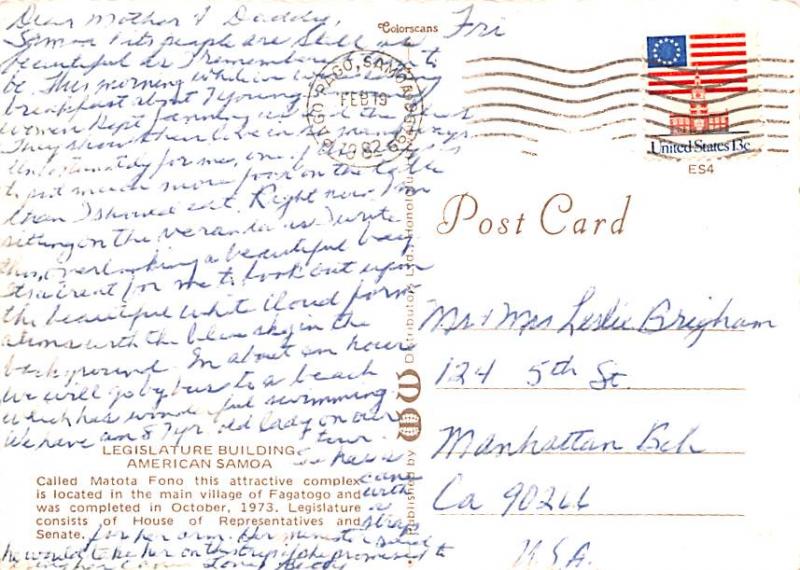 Dear Mother & Daddy,
Samoa & its people are still as
beautiful as I remember to
be. This morning while
breakfast about 7 young
women kept fanning us
They show their love in so many ways.
Unfortunately for me, one
to put much more food on the table
than I should eat. Right now I'm
sitting on the veranda as I write
this, overlooking a beautiful bay
It's a treat for me to look out upon
the beautiful white cloud form
ations with the blue sky in the
background. In about an hour
we will go by bus to a beach
which has wonderful swimming.
We have an 87 yr. old lady on our
tour.
LEGISLATURE BUILDING
AMERICAN SAMOA
Called Matota Fono this attractive complex
is located in the main village of Fagatogo and
was completed in October, 1973. Legislature
consists of House of Representatives and
Senate.
cane
with
a
strap
for her arm. Her minister said
he would take her on this trip if she promised to
Love
Colorscans
Fri
PAGO PAGO, SAMOA
FEB 19
1982
United States 13c
ES4
Post Card
Published by
Distributors Ltd., Honolulu
Mr & Mrs Leslie Brigham
124 5th St.
Manhattan Bch
Ca 90266
U.S.A.